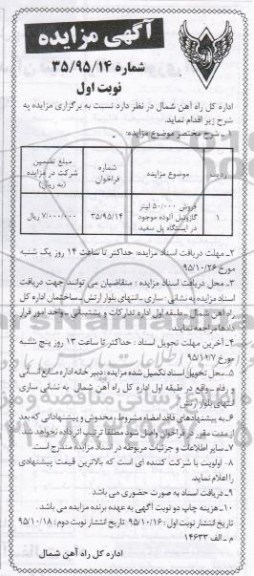 آگهی مزایده
شماره ۳۵/۹۵/۱۴
نوبت اول
اداره کل راه آهن شمال در نظر دارد نسبت به برگزاری مزایده به
شرح زیر اقدام نماید.
۱-شرح مختصر موضوع مزایده:
ردیف موضوع مزایده شماره فراخوان مبلغ تضمین شرکت در مزایده (به ریال)
۱ فروش ۵۰/۰۰۰ لیتر گازوئیل آلوده موجود در ایستگاه پل سفید ۳۵/۹۵/۱۴ ۷/۰۰۰/۰۰۰ ریال
۲-مهلت دریافت اسناد مزایده: حداکثر تا ساعت ۱۴ روز یک شنبه
مورخ ۹۵/۱۰/۲۶
۳-محل دریافت اسناد مزایده : متقاضیان می توانند جهت دریافت
اسناد مزایده به نشانی : ساری-انتهای بلوار ارتش-ساختمان اداره کل
راه آهن شمال-طبقه اول اداره تدارکات و پشتیبانی-واحد امور قرار
دادها مراجعه نمایند
۴-آخرین مهلت تحویل اسناد : حداکثر تا ساعت ۱۳ روز پنج شنبه
مورخ ۹۵/۱۰/۷
۵-محل تحویل اسناد تکمیل شده مزایده : دبیرخانه اداره منابع انسانی
و رفاه واقع در طبقه اول اداره کل راه آهن شمال به نشانی ساری
انتهای بلوار ارتش
۶-به پیشنهادهای فاقد امضاء مشروط، مخدوش و پیشنهاداتی که بعد
از مدت مقرر در فراخوان واصل شود مطلقا ترتیب اثر داده نخواهد شد
۷-سایر اطلاعات و جزئیات مربوطه در اسناد مزایده مندرج است.
۸-اولویت با شرکت کننده ای است که بالاترین قیمت پیشنهادی
را اعلام نماید.
۹-دریافت اسناد به صورت حضوری می باشد.
۱۰-هزینه چاپ دو نوبت آگهی به عهده برنده مزایده می باشد.
تاریخ انتشار نوبت اول : ۹۵/۱۰/۱۶ تاریخ انتشار نوبت دوم : ۹۵/۱۰/۱۸
م-الف ۱۴۶۳۳
اداره کل راه آهن شمال